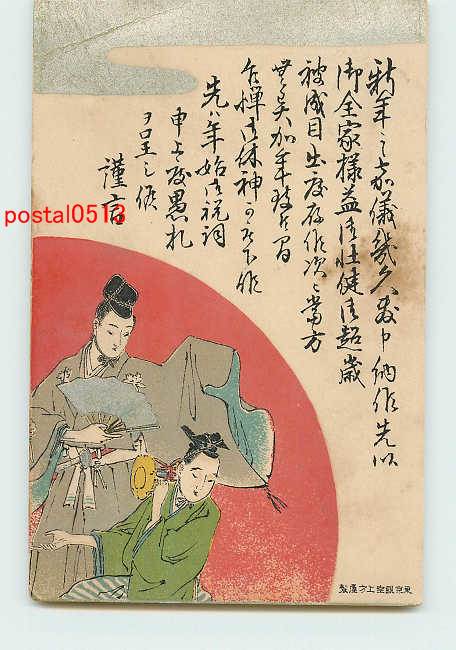 新年之嘉儀幾久敷申納候先以
御全家様益御壮健御超歳
被成目出度存候次ニ當方
無異加年致候間
乍憚御休神可被下候
先ハ年始御祝詞
申上度愚札
謹言
postal0513
東京銀座上方屋製